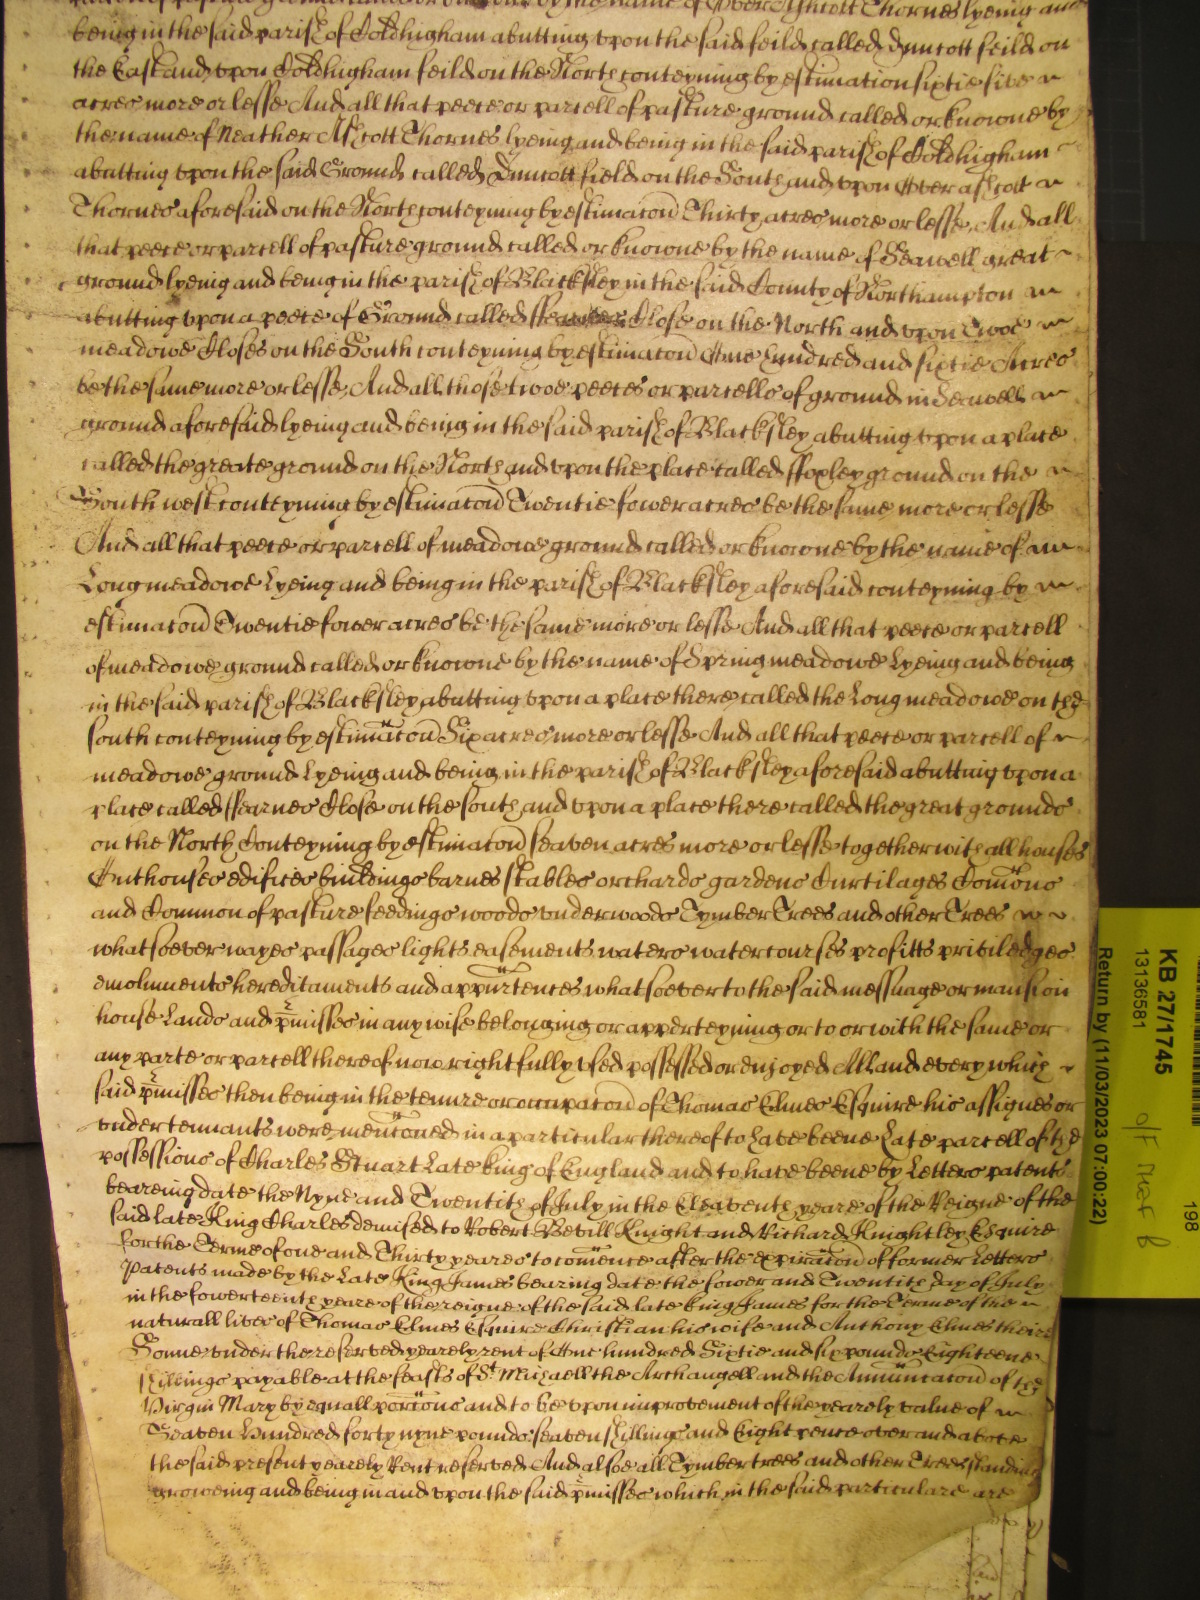 by the name of Over Ashcott Thornes lyeing and
being in the said parish of Coldhigham abutting vpon the said feild called Duncott feild on
the East and vpon Coldhigham feild on the North conteyning by estimation sixtie five
acres more or lesse And all that peece or parcell of pasture ground called or knowne by
the name of Neather Ashcott Thornes lyeing and being in the said parish of Coldhigham
abutting vpon the said Ground called Duncott field on the South and vpon Over ashcott
Thornes aforesaid on the North conteyning by estimacon Thirty acres more or lesse And all
that peece or parcell of pasture ground called or knowne by the name of Seawell great
ground lyeing and being in the parish of Blacksley in the said County of Northampton
abutting vpon a peece of Ground called Close on the North and vpon Twoe
meadowe Closes on the South conteyning by estimacon One hundred and sixtie Acres
be the same more or lesse And all those twoe peeces or parcells of ground in Seawell
ground aforesaid lyeing and being in the said parish of Blacksley abutting vpon a place
called the greate ground on the North and vpon the place called ffoxley ground on the
South west conteyning by estimacon Twentie fower acres be the same more or lesse
And all that peece or parcell of meadowe ground called or knowne by the name of
Long meadowe Lyeing and being in the parish of Blacksley aforesaid conteyning by
estimacon Twentie fower acres be the same more or lesse And all that peece or parcell
of meadowe ground called or knowne by the name of Spring meadowe Lyeing and being
in the said parish of Blacksley abutting vpon a place there called the Long meadowe on the
south conteyning by estimacon Six acres more or lesse And all that peece or parcell of
meadowe ground Lyeing and being in the parish of Blacksley aforesaid abutting vpon a
place called ffearnes Close on the south and vpon a place there called the great grounds
on the North Conteyning by estimacon seaven acres more or lesse together with all houses
Outhouses edifices buildings barnes stables orchards gardens Curtilages Comons
and Common of pasture feedings woods vnderwoods Tymber Trees and other Trees
whatsoever wayes passages lights easements waters watercourses profitts priviledges
emolumentes hereditaments and appurtences whatsoever to the said messuage or mansion
house Lands and pmisses in any wise belonging or apperteyning or to or with the same or
any parte or parcell thereof now rightfully vsed possessed or enjoyed All and every which
said pmisses then being in the tenure or occupacon of Thomas Elmes Esquire his assignes or
vndertennants were mencioned in a particular thereof to have beene Late parcell of the
possessions of Charles Stuart Late king of England and to have beene by Letters patents
beareing date the Nyne and Twentith of July in the Eleaventh yeare of the Reigne of the
said late King Charles demised to Robert Bevill Knight and Richard Knightley Esquire
for the Terme of one and Thirty yeares to comence after the expiracon of former Letters
Patents made by the Late King James bearing date the fower and Twentith day of July
in the fowerteenth yeare of the reigne of the said late king James for the Terme of the
naturall lives of Thomas Elmes Esquire Christian his wife and Anthony Elmes their
Sonne vnder the reserved yearely rent of One hundred Sixtie and six pounds Eighteene
shillings payable at the feasts of St Michaell the Archangell and the Annuncacon of the
Virgin Mary by equall porcons and to be vpon improvement of the yearely value of
Seaven Hundred forty nyne pounds seaven shillings and Eight pence over and above
the said present yearely Rent reserved And alsoe all Tymber trees and other Trees standing
groweing and being in and vpon the said pmisses which in the said particulare are
KB 27/1745
13136581
Return by (11/03/2023 07:00:22)
198